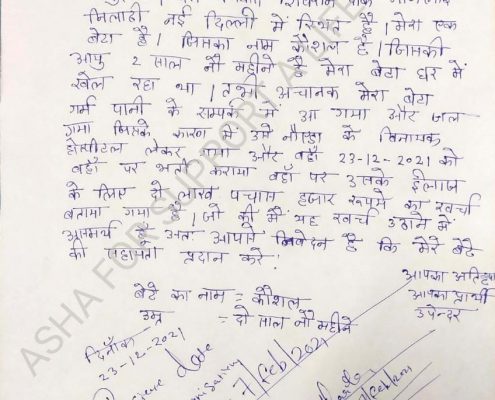 जिलाठी नई दिल्ली में स्थित है। मेरा एक
बेटा है। जिसका नाम कौशल है। जिसकी
आयु 2 साल नौ महीने है मेरा बेटा घर में
खेल रहा था। तभी अचानक मेरा बेटा
गर्म पानी के सम्पर्क में आ गया और जल
गया जिसके कारण मैं उसे नोएडा के विनायक
होस्पीटल लेकर गया और वहाँ 23-12-2021 को
वहाँ पर भर्ती कराया वहाँ पर उसके ईलाज
के लिए दो लाख पचास हजार रूपये का खर्चा
बताया गया है। जो की मैं यह खर्च उठाने में
असमर्थ हूँ अतः आपसे निवेदन है कि मेरे बेटे
की सहायता प्रदान करे।
आपका प्रार्थी
उपेन्दर
बेटे का नाम = कौशल
उम्र = दो साल नौ महीने
दिनाँक
23-12-2021
Date
7/Feb/2021
ASHA FOR SUPPORT A LIFE